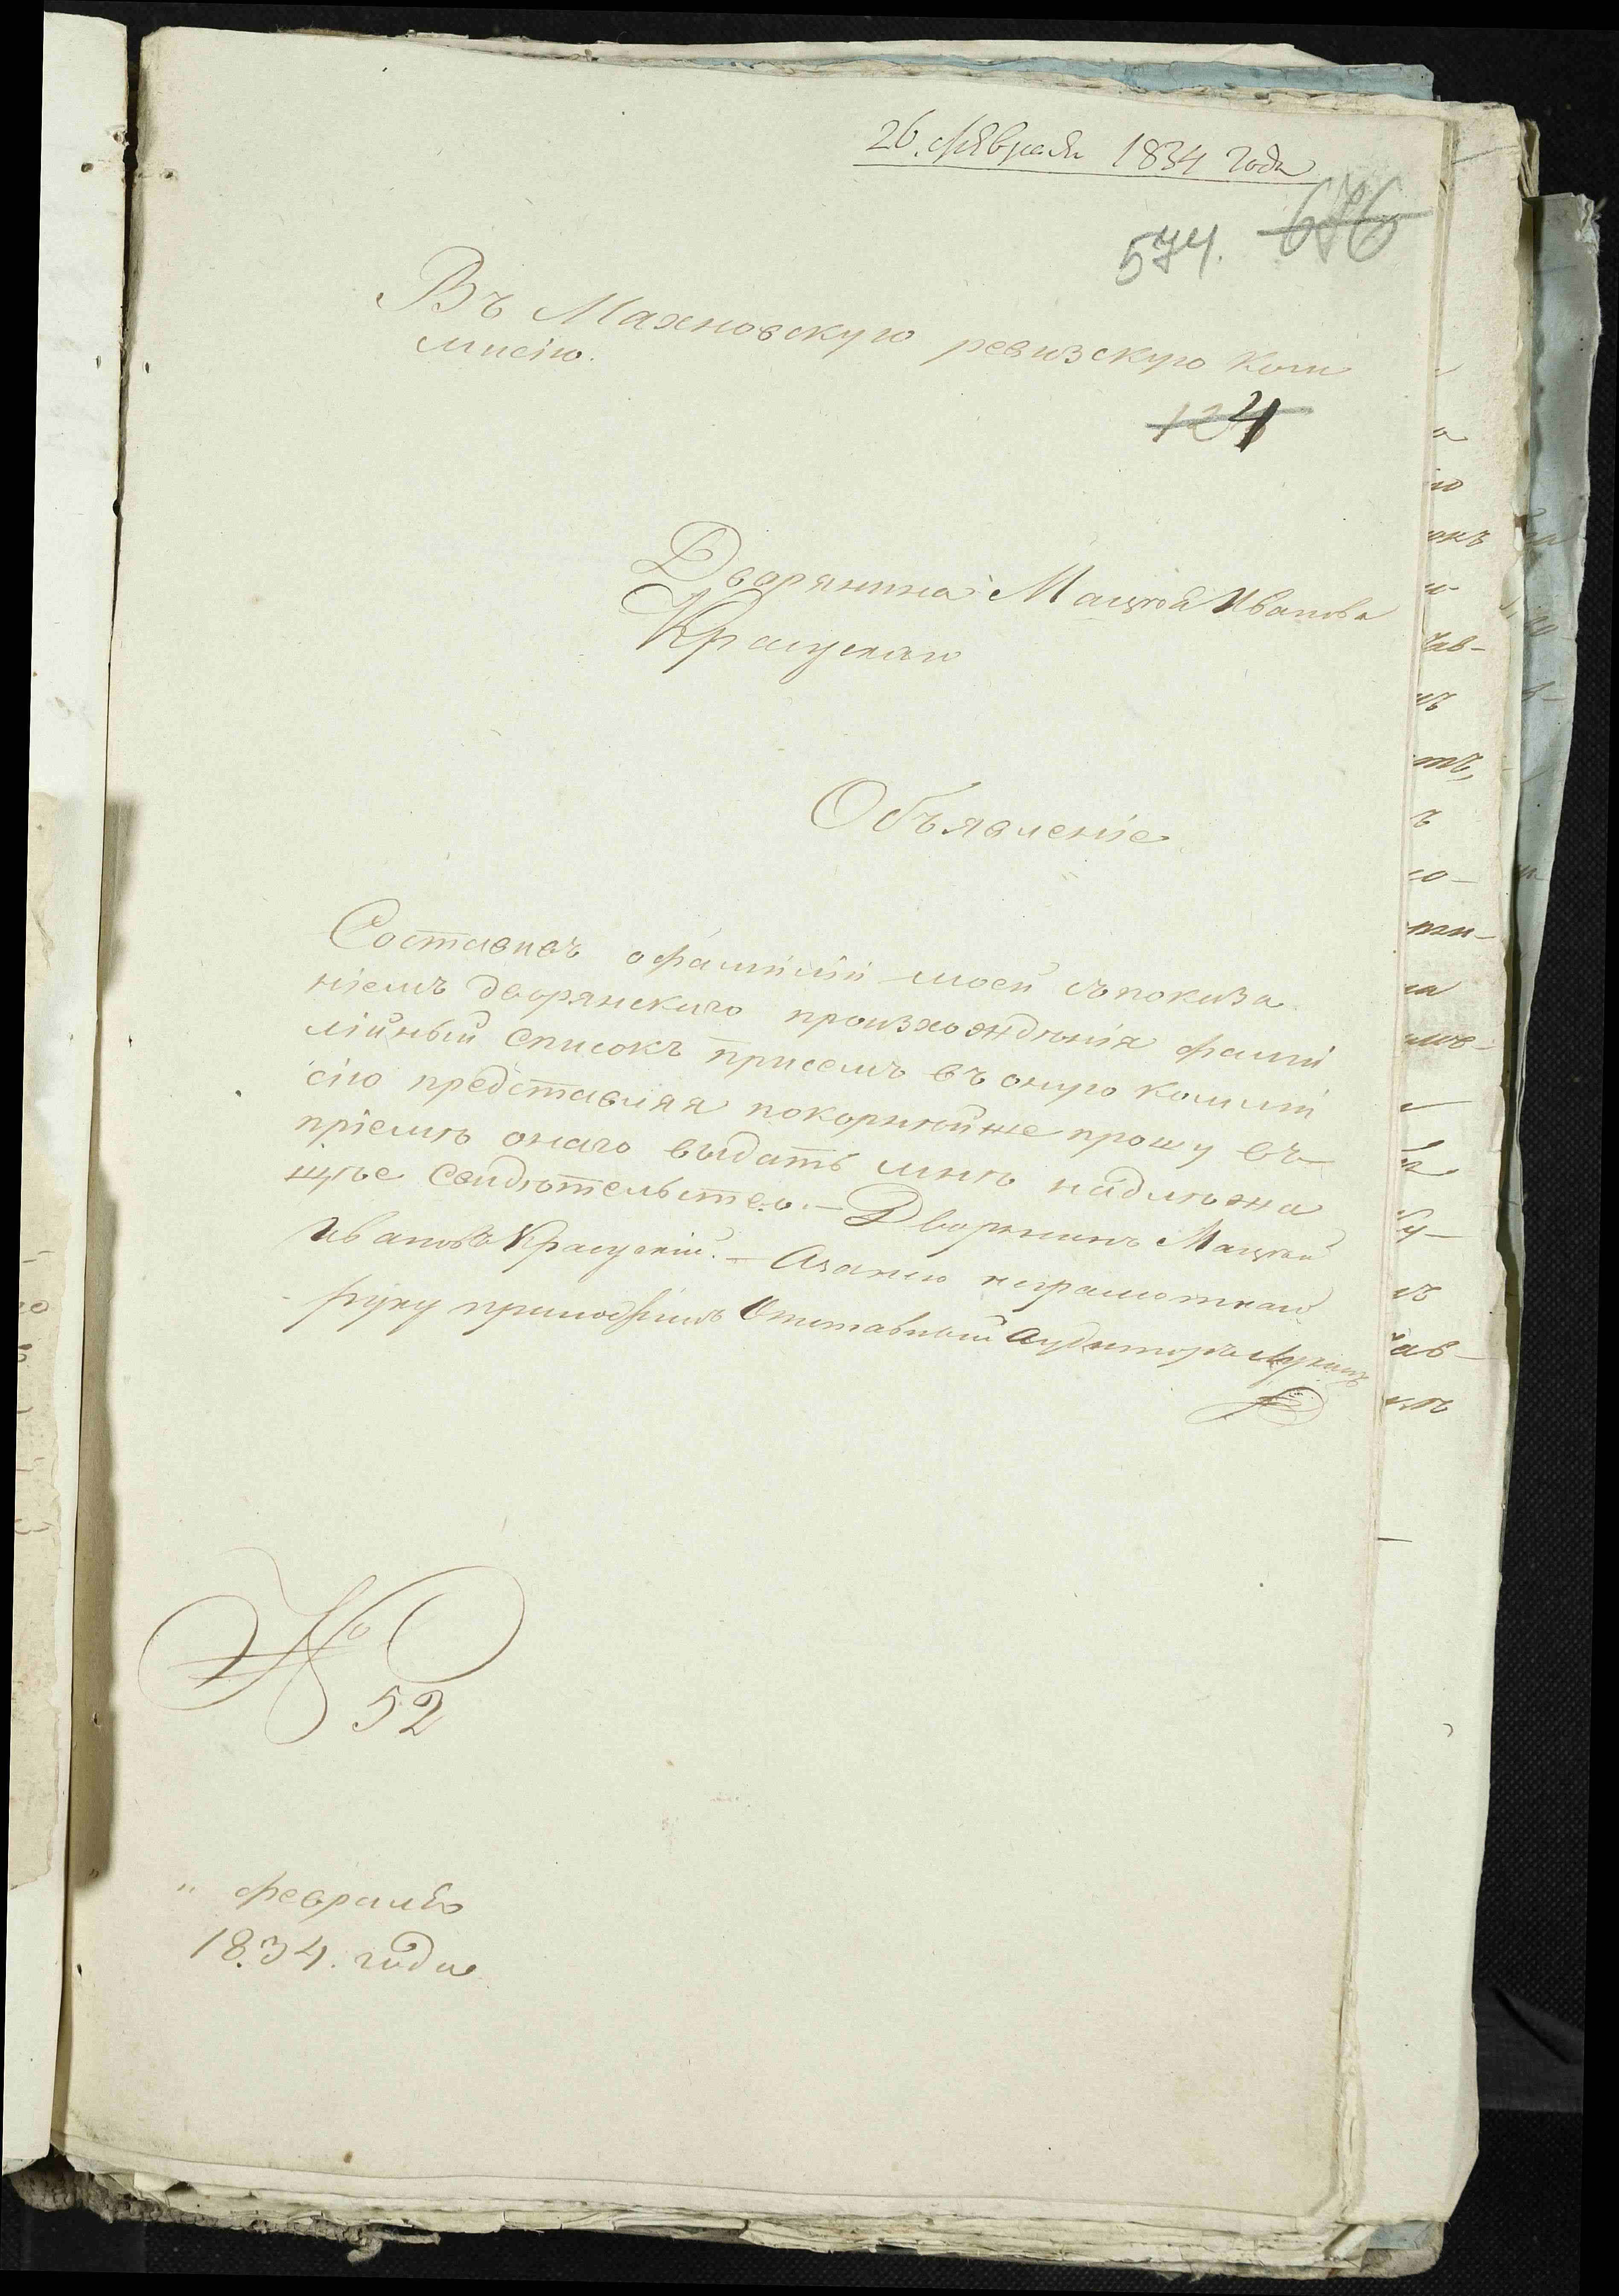 26. февраля 1834 года
574. 676
Въ Махновскую ревизскую Ком
мисію.
124
Дворянина Мацѣя Иванова
Красускаго
Объявленіе
Составивъ офамиліи моей съпоказа
ніемъ дворянскаго произхожденія фами
лійный списокъ присемъ въ оную комми
сію представляя покорнѣйше прошу въ
пріемѣ онаго выдать мнѣ надлѣжа
щѣе свидѣтельство. — Дворянинъ Мацѣй
Ивановъ Красускій. — Азанего неграмотнаго
руку приложилъ Отставный Аудиторъ
№
52
" февраля
1834. года